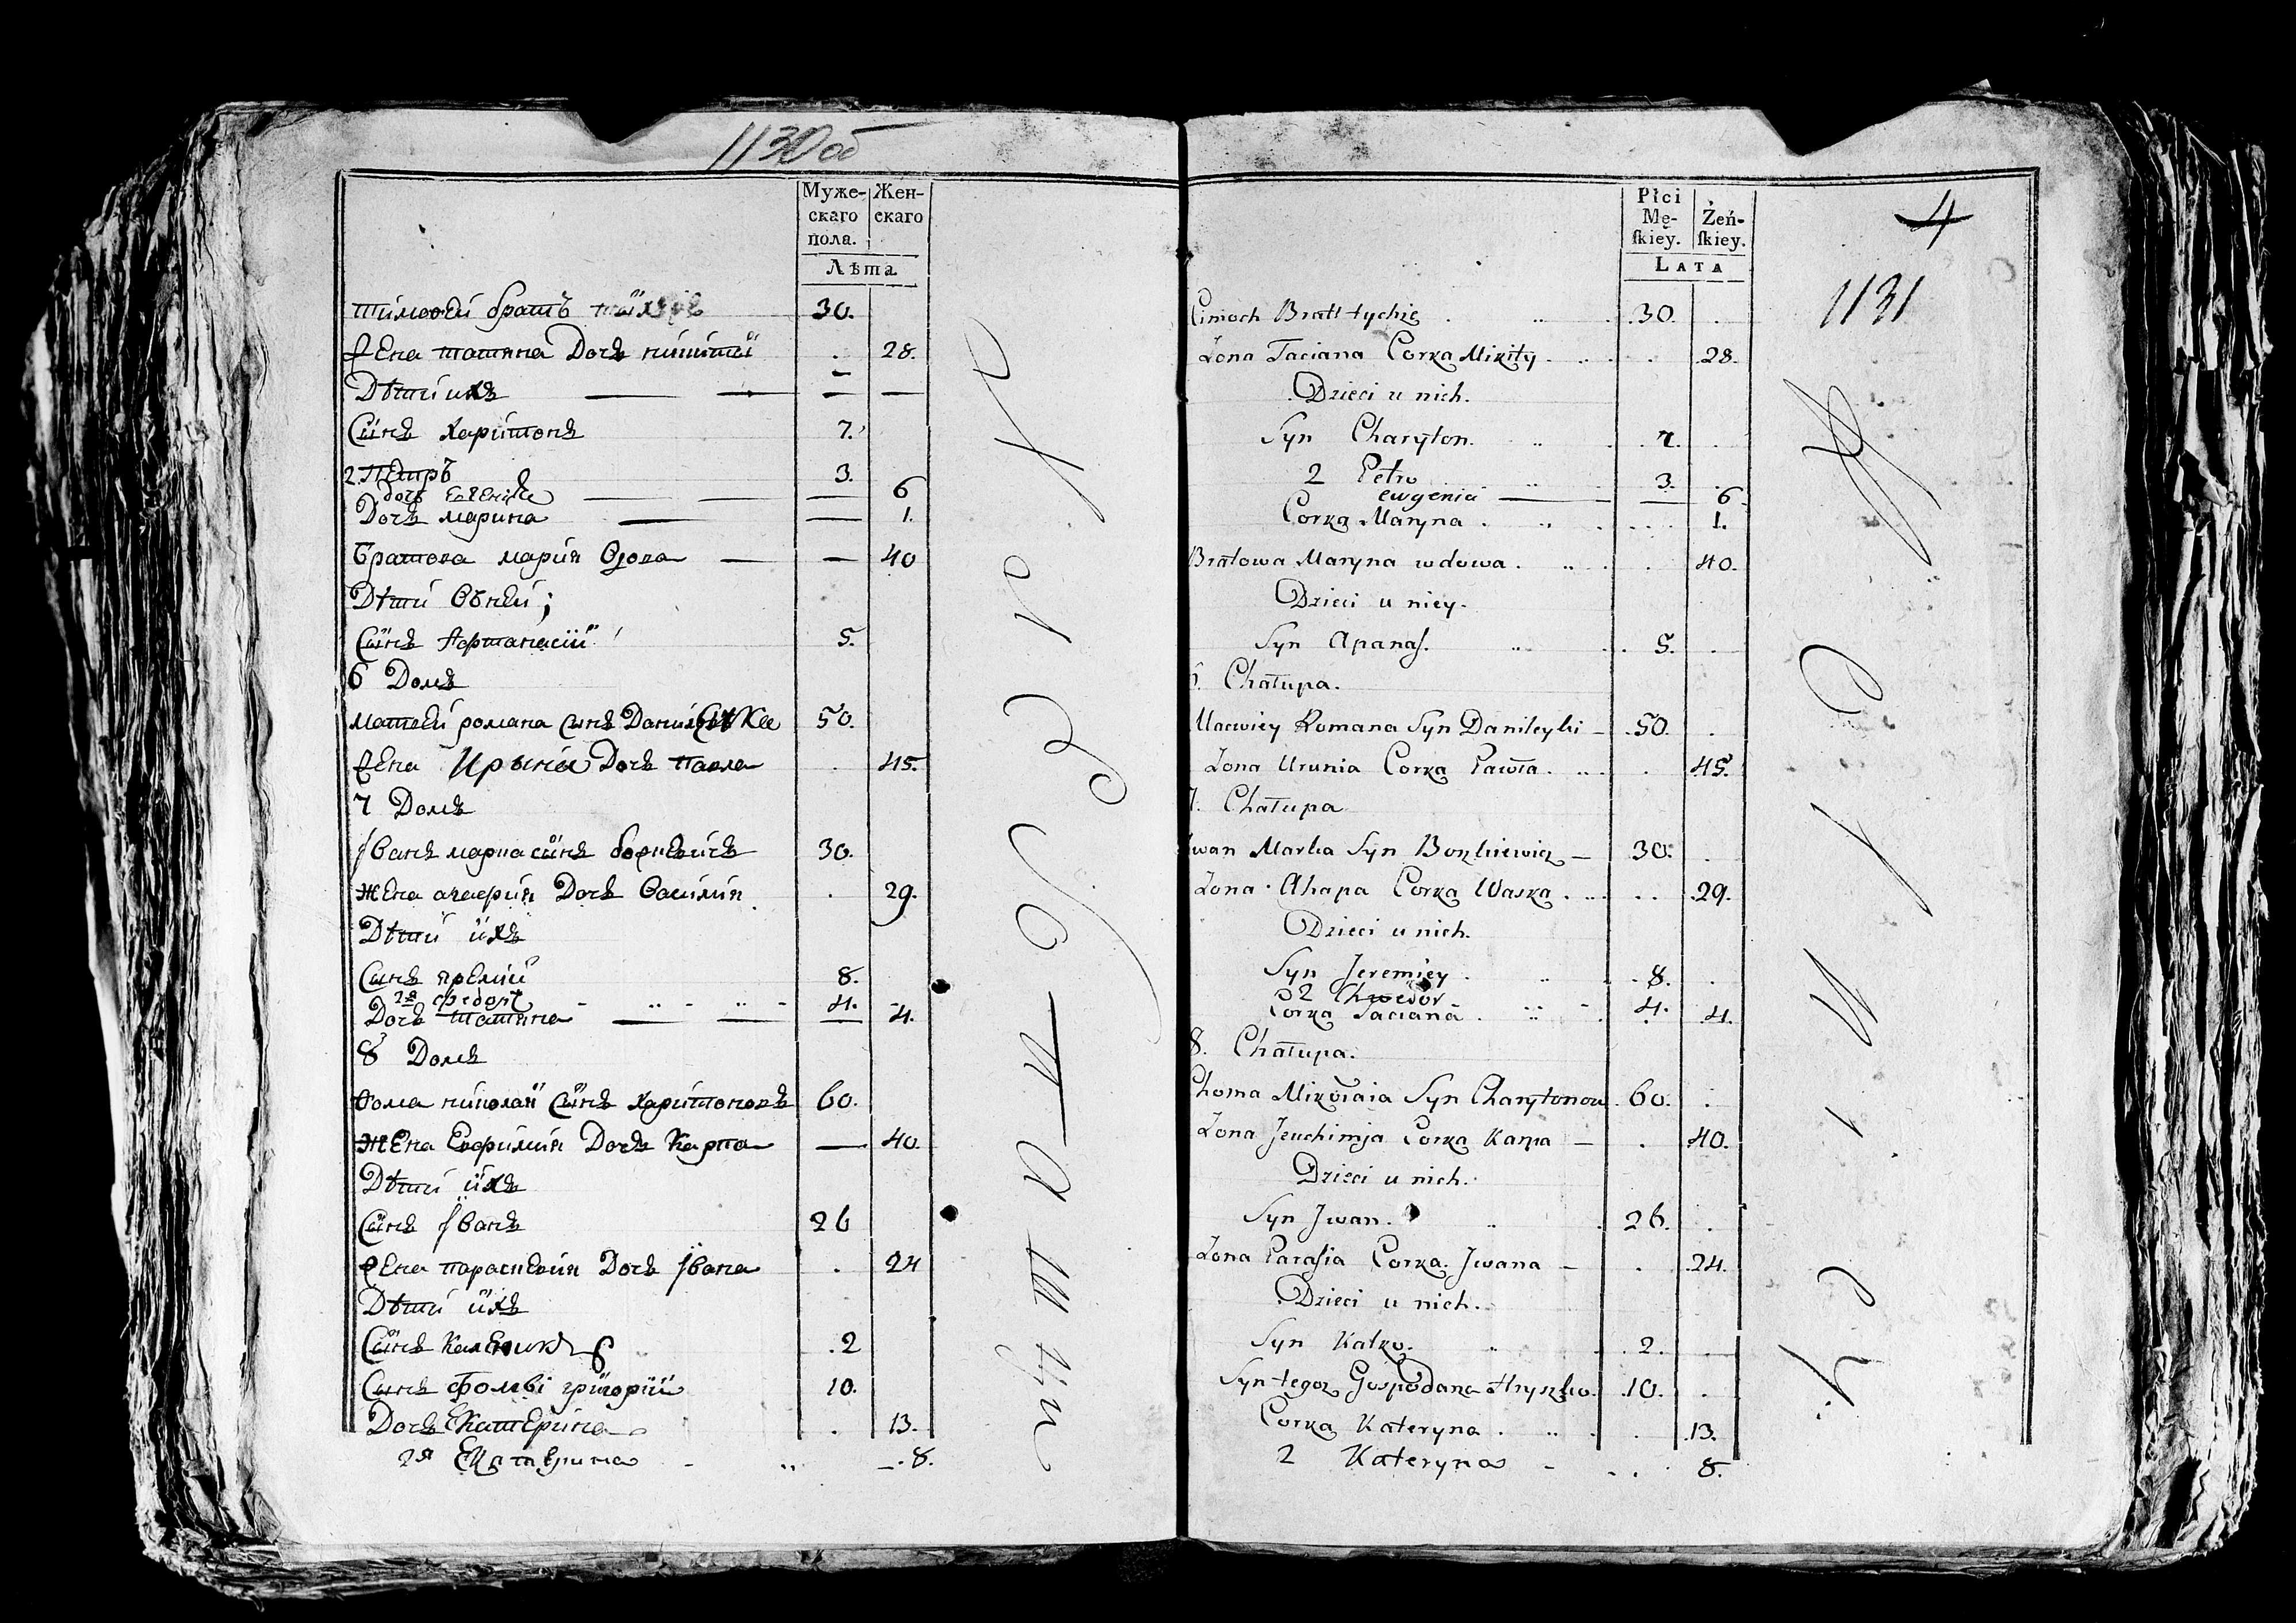 1130об
Муже-
скаго
пола.
Жен-
скаго
Лѣта
тимоѳей братъ 30.
жена татяна Дочь никиты 28.
Дѣти ихъ
Сынъ харитонъ 7.
2. Петръ 3.
дочь Евгения 6
Дочь марина 1.
Братова мария Вдова 40
Дѣти Внеи;
Сынъ Афтанасий 5.
6 Домъ
матвей романа сынъ 50.
жена Ирыния Дочь павла 45.
7 Домъ
Иванъ марка сынъ 30.
жена Дочь василия 29.
Дѣти ихъ
Сынъ яремий 8.
2й федоръ 4.
Дочь татяна 4.
8 Домъ
Фома николая Сынъ харитоновъ 60.
жена Евфимия Дочь Карпа 40.
Дѣти ихъ
Сынъ Иванъ 26
жена параскевия Дочь Ивана 24
Дѣти ихъ
Сынъ Каленикъ 2
Сынъ фомы григорий 10.
Дочь Екатерина 13.
2я Екатерина 8.
Płci
Mę-
skiey.
Żeń-
skiey.
LATA
4
1131
Cimoch Brat tychże 30.
Zona Taciana Corka Mikity 28.
Dzieci u nich.
Syn Charyton. 7.
2 Petro 3.
ewgenia 6
Corka Maryna 1.
Bratowa Maryna wdowa 40.
Dzieci u niey.
Syn Apanas. 5.
6. Chałupa.
Macwiey Romana Syn Danileyki 50.
Zona Urunia Corka Pawła 45.
7. Chałupa
Iwan Marka Syn Borkiewicz 30.
Zona Ahapa Corka Waska 29.
Dzieci u nich.
Syn Jeremiey 8.
2 Chwedor 4.
Corka Taciana 4.
8. Chałupa.
Choma Mikołaia Syn Charytonow 60.
Zona Jeuchimja Corka Karpa 40.
Dzieci u nich.
Syn Jwan. 26.
Zona Parasia Corka Jwana 24.
Dzieci u nich.
Syn Kalko. 2.
Syn tegoz Gospodarza Hryszko. 10.
Corka Kateryna 13.
2 Kateryna 8.